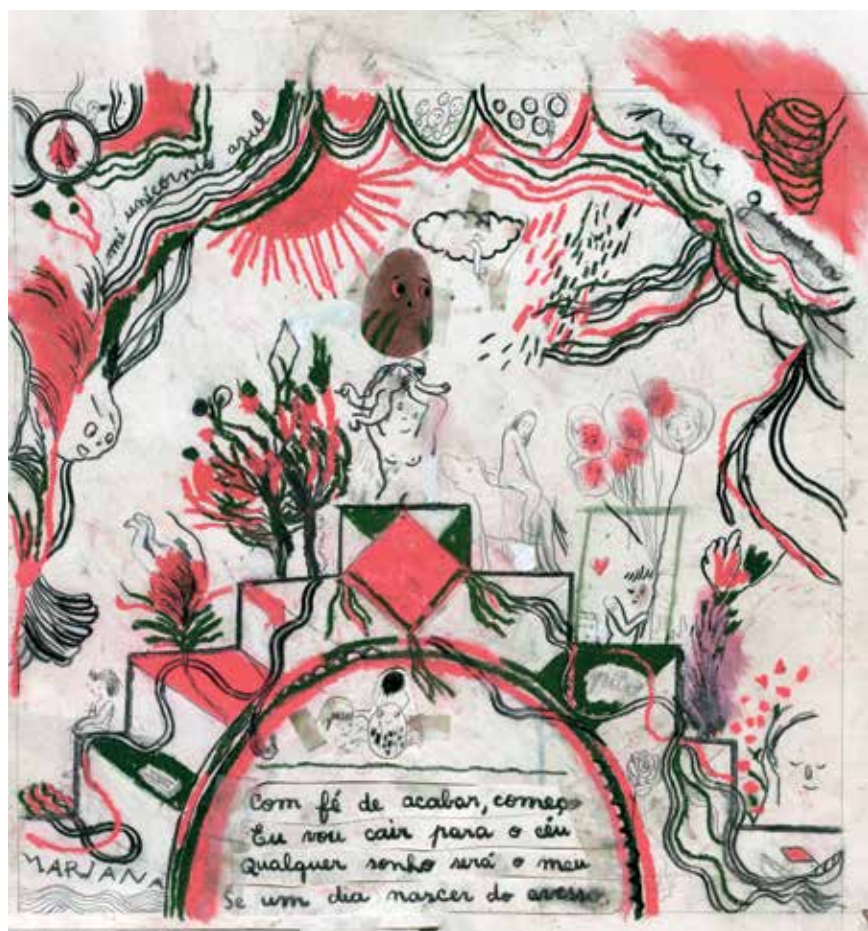 mi unicornio azul
Com fé de acabar, começo
Eu vou cair para o céu
Qualquer sonho será o meu
Se um dia nascer do avesso.
MARIANA